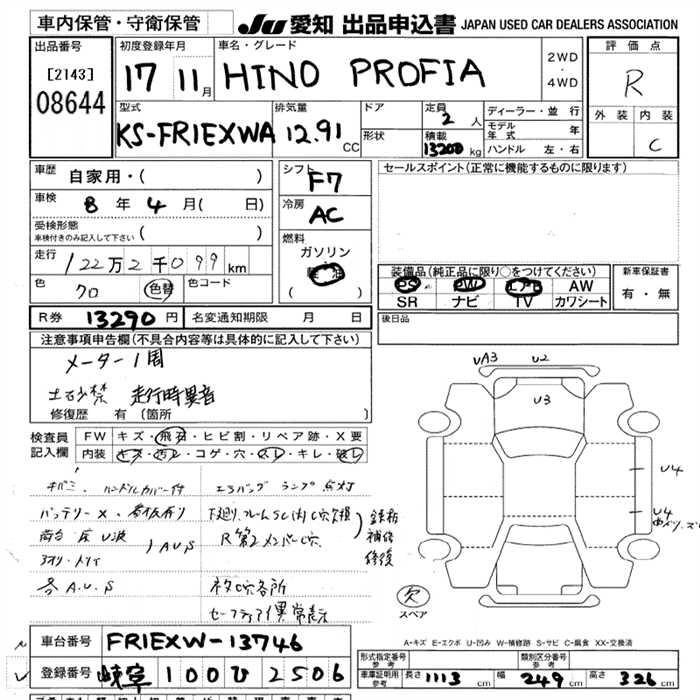 車内保管・守衛保管
JU 愛知 出品申込書 JAPAN USED CAR DEALERS ASSOCIATION
出品番号
[2143]
08644
初度登録年月
17 11月
車名・グレード
HINO PROFIA
2WD
・
4WD
評価点
R
外装 内装
C
型式
KS-FR1EXWA
排気量
12.91 CC
ドア
形状
定員
2 人
積載
13200 kg
ディーラー・並行
モデル年式 年
ハンドル 左・右
車歴
自家用・( )
車検
8年 4月( 日)
受検形態
車検付きのみ記入して下さい ( )
走行
122万2千099km
色
クロ
色替
色コード
シフト
F7
冷房
AC
燃料
ガソリン
軽油
( )
セールスポイント(正常に機能するものに限ります)
装備品(純正品に限り○をつけてください)
PS PW エアB AW
SR ナビ TV カワシート
新車保証書
有・無
R券 13290円
名変通知期限 月 日
後日品
注意事項申告欄(不具合内容等は具体的に記入して下さい)
メーター1周
土砂禁 走行時異音
修復歴 有 [箇所 ]
検査員
記入欄
FW キズ・飛石・ヒビ割・リペア跡・X要
内装 キズ・汚レ・コゲ・穴・スレ・キレ・破レ
キバミ、ハンドルカバー付
エアバッグ ランプ点灯
バッテリーX・看板有り
下廻り、フレームSC(内)C穴欠損
荷台 床 U波
R第2メンバーC穴
鉄板
補修
修復
A U S
各A.U.S
セーフティ異常表示
UA3 U2
U3
U4
U4
欠
スペア
A-キズ E-エクボ U-凹み W-補修跡 S-サビ C-腐食 XX-交換済
車台番号 FR1EXW-13746
登録番号 岐阜 100ひ2506
形式指定番号
参考
類別区分番号
参考
車庫証明用
参考
長さ 1113 cm 幅 249 cm 高さ 326 cm